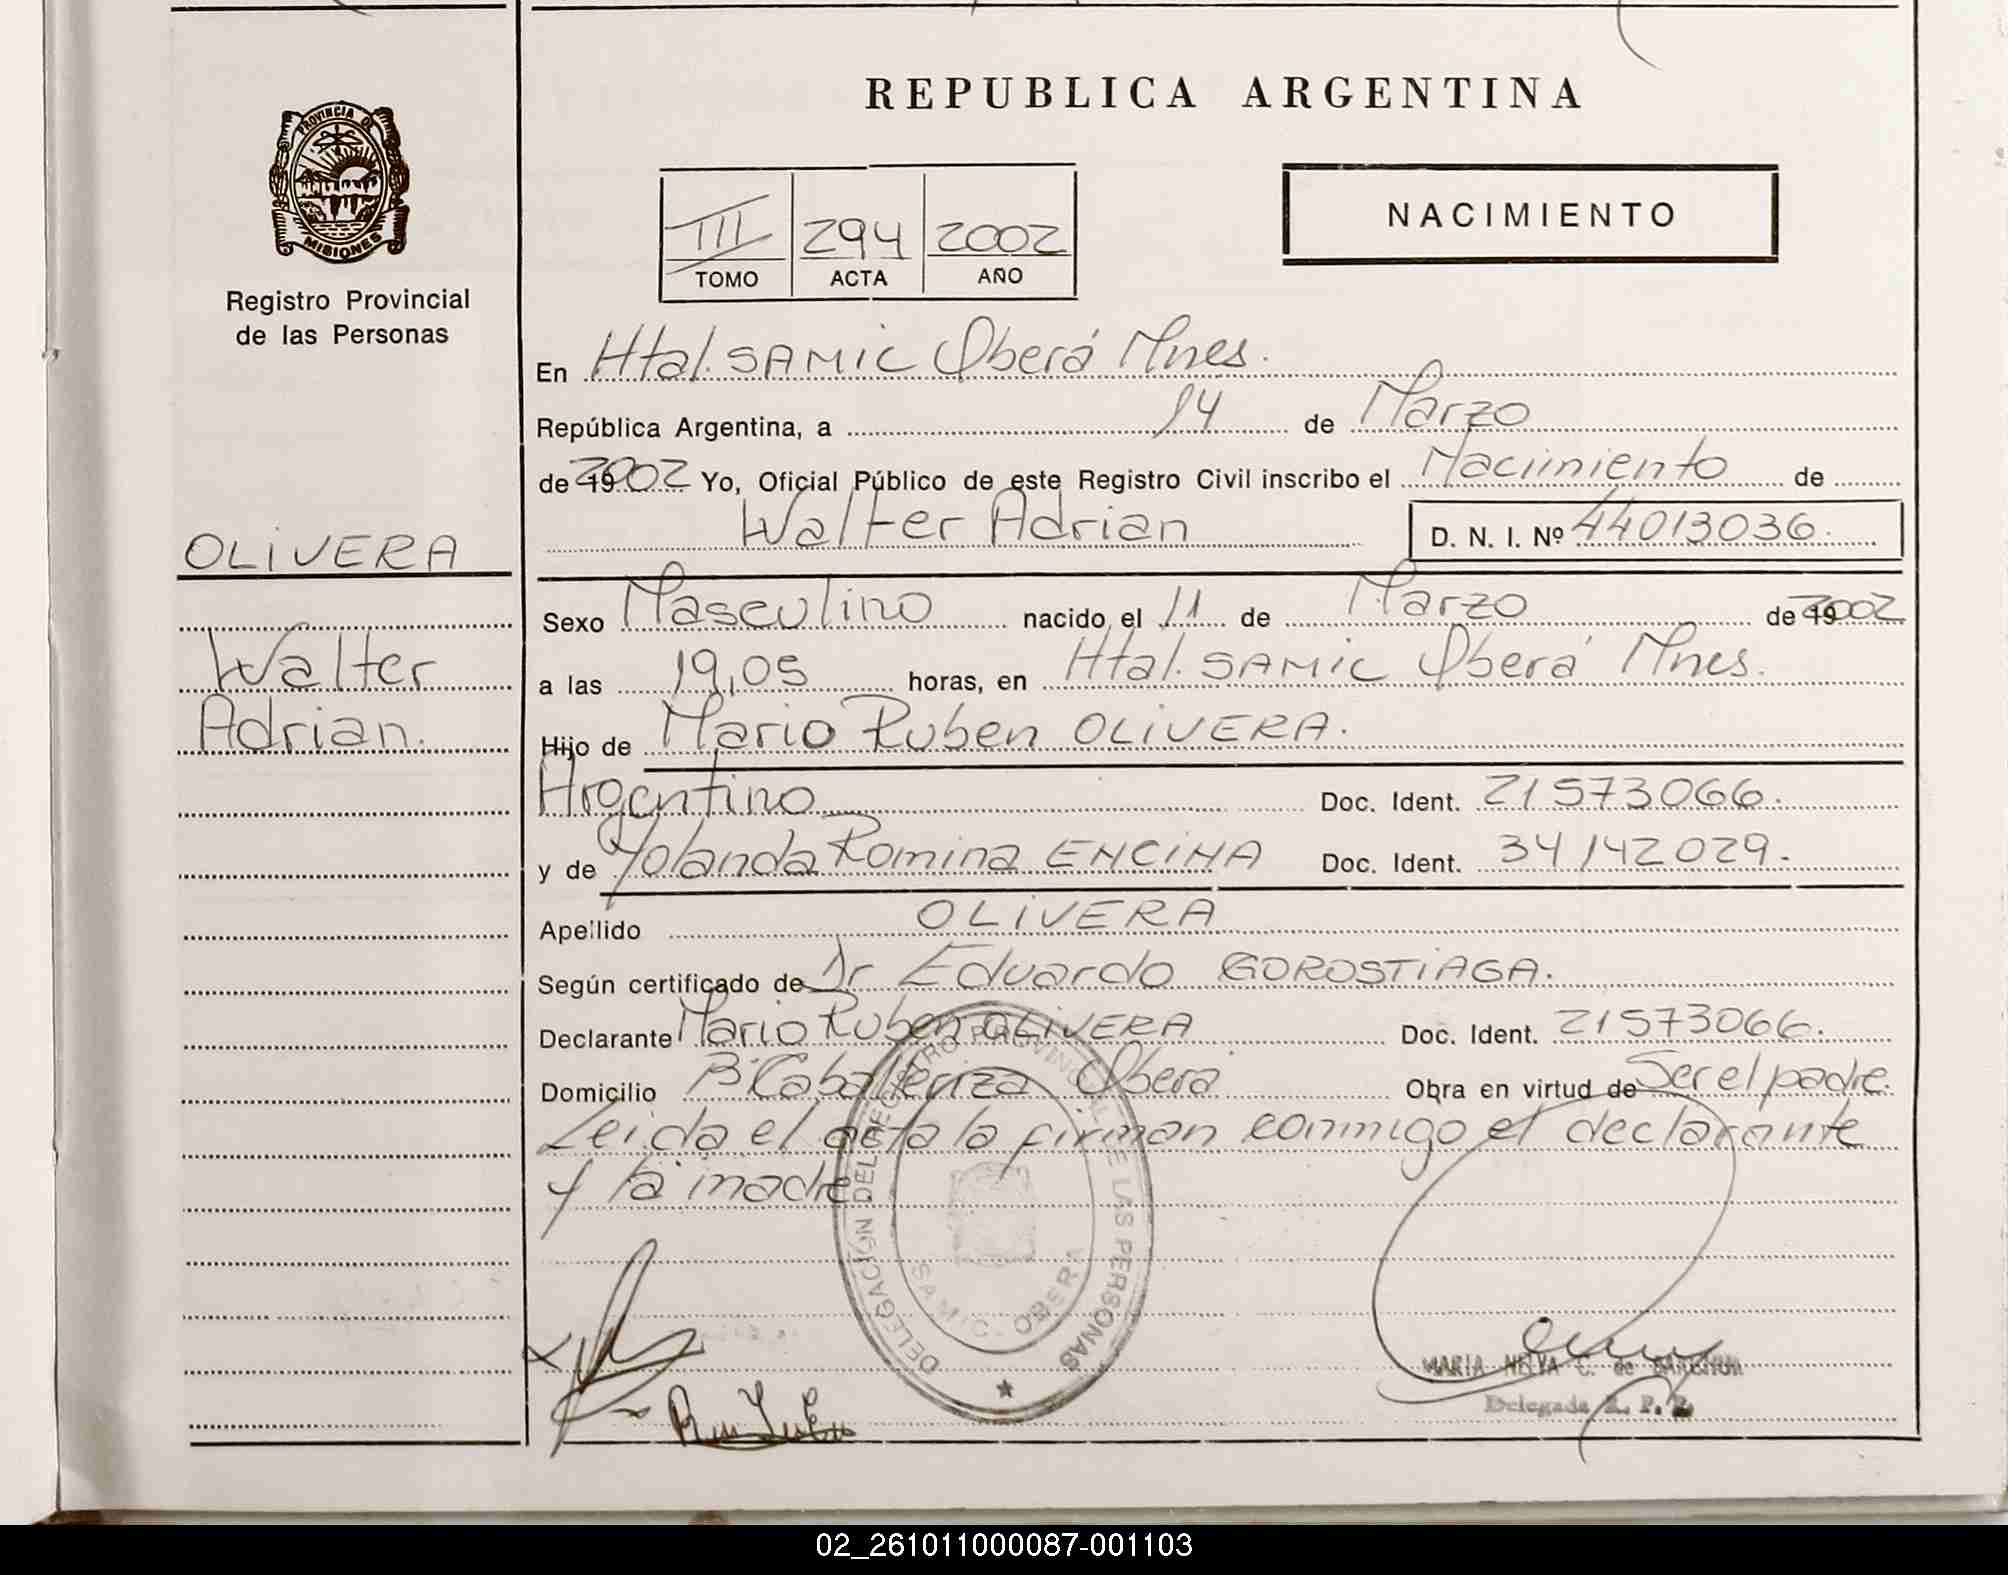 REPUBLICA ARGENTINA
PROVINCIA DE
MISIONES
Registro Provincial
de las Personas
III 294 2002
TOMO ACTA AÑO
NACIMIENTO
En Htal. SAMIC Oberá Mnes.
República Argentina, a 14 de Marzo
de 2002 Yo, Oficial Público de este Registro Civil inscribo el Nacimiento de
Walter Adrian D. N. I. Nº 44013036.
OLIVERA
Walter
Adrian.
Sexo Masculino nacido el 11 de Marzo de 2002
a las 19,05 horas, en Htal. SAMIC Oberá Mnes.
Hijo de Mario Ruben OLIVERA.
Argentino Doc. Ident. 21573066.
y de Yolanda Romina ENCINA Doc. Ident. 34142029.
Apellido OLIVERA
Según certificado de Dr Eduardo GOROSTIAGA.
Declarante Mario Ruben OLIVERA Doc. Ident. 21573066.
Domicilio Oberá Obra en virtud de Ser el padre.
Leida el acta la firman conmigo el declarante
y la madre
DELEGACIÓN DEL REGISTRO PROVINCIAL DE LAS PERSONAS
SAMIC - OBERA
MARIA NELVA C. de
Delegada R. P. P.
02_261011000087-001103